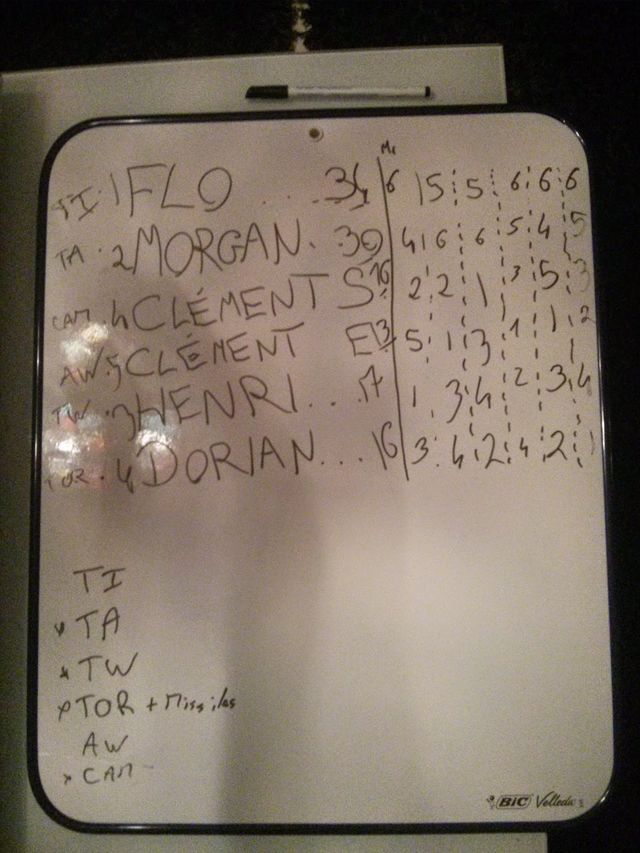 M1
TI · 1 FLO .... 34 6 5 5 6 6 6
TA · 2 MORGAN. 30 4 6 6 5 4 5
CAM · 4 CLÉMENT S 16 2 2 1 3 5 3
AW · 5 CLÉMENT E 13 5 1 3 1 1 2
TW · 3 HENRI... 17 1 3 4 2 3 4
TOR · 4 DORIAN... 16 3 4 2 4 2 1
TI
x TA
x TW
x TOR + Missiles
AW
x CAM
BIC Velleda